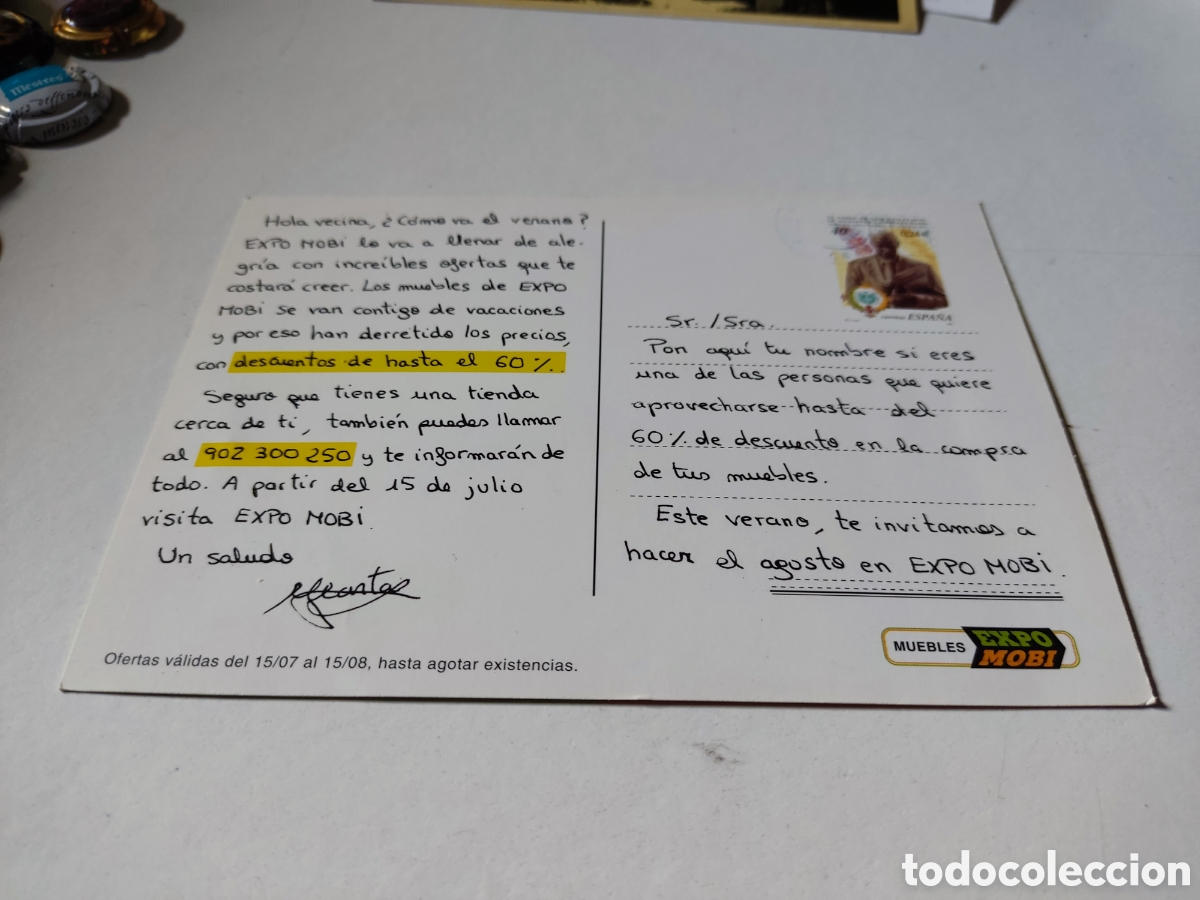 Mestres
Hola vecina, ¿Cómo va el verano?
EXPO MOBI lo va a llenar de ale-
gría con increíbles ofertas que te
costará creer. Los muebles de EXPO
MOBI se van contigo de vacaciones
y por eso han derretido los precios,
con descuentos de hasta el 60%.
Seguro que tienes una tienda
cerca de ti, también puedes llamar
al 902 300 250 y te informarán de
todo. A partir del 15 de julio
visita EXPO MOBI.
Un saludo
Ofertas válidas del 15/07 al 15/08, hasta agotar existencias.
40
ESPAÑA
Sr./Sra.
Pon aquí tu nombre si eres
una de las personas que quiere
aprovecharse hasta del
60% de descuento en la compra
de tus muebles.
Este verano, te invitamos a
hacer el agosto en EXPO MOBI.
MUEBLES EXPO
MOBI
todocoleccion